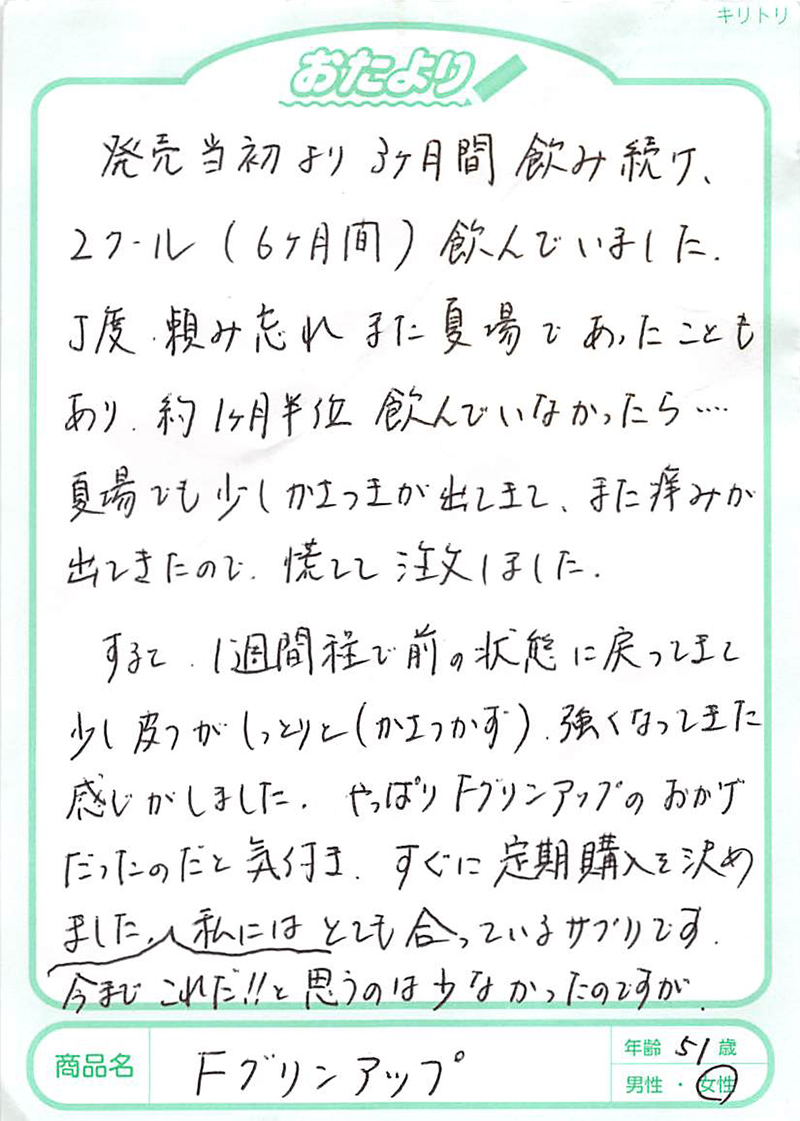 キリトリ
おたより
発売当初より3ヶ月間飲み続け、
2クール(6ヶ月間)飲んでいました.
丁度.頼み忘れまた夏場であったことも
あり.約1ヶ月半位飲んでいなかったら….
夏場でも少しかさつきが出てきて、また痒みが
出てきたので.慌てて注文しました.
すると.1週間程で前の状態に戻ってきて
少し皮フがしっとりと(かさつかず).強くなってきた
感じがしました.やっぱりFグリンアップのおかげ
だったのだと気付き.すぐに定期購入を決め
ました.私にはとても合っているサプリです.
今までこれだ!!と思うのは少なかったのですが.
商品名 Fグリンアップ
年齢 51 歳
男性・女性